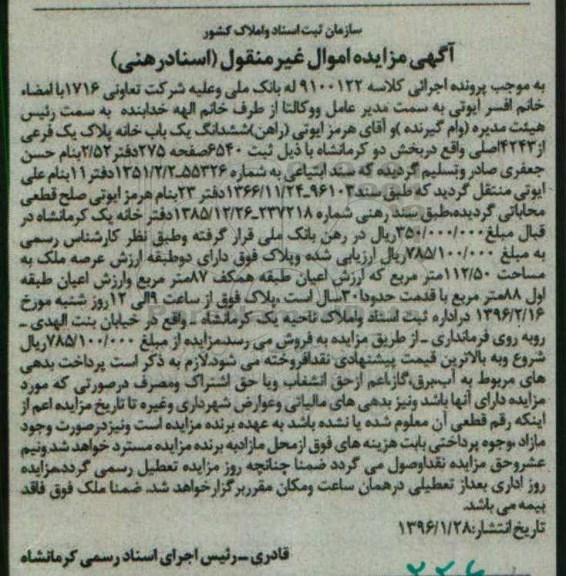 سازمان ثبت اسناد واملاک کشور
آگهی مزایده اموال غیر منقول (اسناد رهنی)
به موجب پرونده اجرائی کلاسه ۹۱۰۰۱۲۲ له بانک ملی وعلیه شرکت تعاونی ۱۷۱۶با امضاء
خانم افسر ایوتی به سمت مدیر عامل ووکالتا از طرف خانم الهه خدابنده به سمت رئیس
هیئت مدیره (وام گیرنده )و آقای هرمز ایوتی (راهن)ششدانگ یک باب خانه پلاک یک فرعی
از۴۲۴۳اصلی واقع دربخش دو کرمانشاه با ذیل ثبت ۶۵۴۰صفحه ۲۷۵دفتر۲/۵۲بنام حسن
جعفری صادر وتسلیم گردیده که سند ابتیاعی به شماره ۵۵۳۲۶-۱۳۵۱/۲/۲دفتر۱۱بنام علی
ایوتی منتقل گردید که طبق سند۹۶۱۰۳-۱۳۶۶/۱۱/۲۴دفتر ۲۳بنام هرمز ایوتی صلح قطعی
محاباتی گردیده،طبق سند رهنی شماره ۲۳۷۲۱۸-۱۳۸۵/۱۲/۲۶دفتر خانه یک کرمانشاه در
قبال مبلغ۳۵۰/۰۰۰/۰۰۰ریال در رهن بانک ملی قرار گرفته وطبق نظر کارشناس رسمی
به مبلغ ۷۸۵/۱۰۰/۰۰۰ریال ارزیابی شده وپلاک فوق دارای دوطبقه ارزش عرصه ملک به
مساحت ۱۱۲/۵۰متر مربع که ارزش اعیان طبقه همکف ۸۷متر مربع وارزش اعیان طبقه
اول ۸۸متر مربع با قدمت حدودا۳۰سال است ،پلاک فوق از ساعت ۹الی ۱۲روز شنبه مورخ
۱۳۹۶/۲/۱۶ دراداره ثبت اسناد واملاک ناحیه یک کرمانشاه -واقع در خیابان بنت الهدی -
روبه روی فرمانداری -از طریق مزایده به فروش می رسد،مزایده از مبلغ ۷۸۵/۱۰۰/۰۰۰ریال
شروع وبه بالاترین قیمت پیشنهادی نقدافروخته می شود،لازم به ذکر است پرداخت بدهی
های مربوط به آب،برق،گاز،اعم ازحق انشعاب ویا حق اشتراک ومصرف درصورتی که مورد
مزایده دارای آنها باشد ونیز بدهی های مالیاتی وعوارض شهرداری وغیره تا تاریخ مزایده اعم از
اینکه رقم قطعی آن معلوم شده یا نشده باشد به عهده برنده مزایده است ونیزدرصورت وجود
مازاد ،وجوه پرداختی بابت هزینه های فوق ازمحل مازادبه برنده مزایده مسترد خواهد شد،ونیم
عشروحق مزایده نقداوصول می گردد ضمنا چنانچه روز مزایده تعطیل رسمی گردد،مزایده
روز اداری بعداز تعطیلی درهمان ساعت ومکان مقرربرگزارخواهد شد، ضمنا ملک فوق فاقد
بیمه می باشد.
تاریخ انتشار:۱۳۹۶/۱/۲۸
قادری -رئیس اجرای اسناد رسمی کرمانشاه